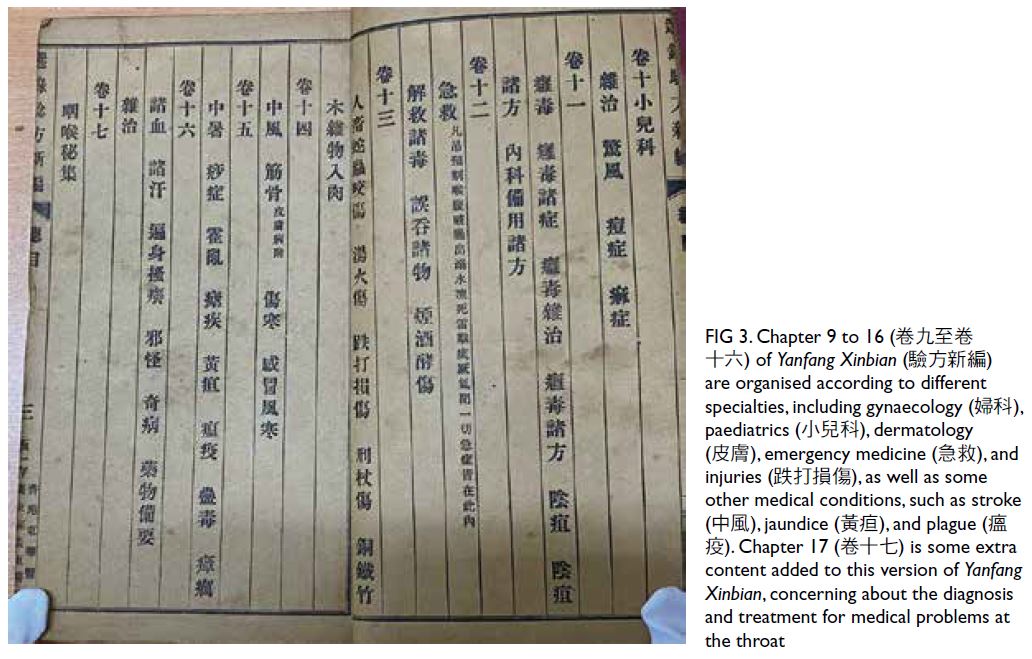 卷十小兒科
雜治 驚風 痘症 痲症
卷十一
癰毒 癰毒諸症 癰毒雜治 癰毒諸方 陰疽 陰疽
諸方 內科備用諸方
卷十二
急救 凡吊頸刎喉破腹腸出溺水凍死雷擊 厥氣閉一切急症皆在此內
解救諸毒 誤吞諸物 煙酒醉傷
卷十三
人畜蛇蟲咬傷 湯火傷 跌打損傷 刑杖傷 銅鐵竹
木雜物入肉
卷十四
中風 筋骨皮膚病附 傷寒 感冒風寒
卷十五
中暑 痧症 霍亂 瘧疾 黃疸 瘟疫 蠱毒 瘴癘
卷十六
諸血 諸汗 遍身搔癢 邪怪 奇病 藥物備要
雜治
卷十七
咽喉秘集
驗方新編
總目
三
FIG 3. Chapter 9 to 16 (卷九至卷
十六) of Yanfang Xinbian (驗方新編)
are organised according to different
specialties, including gynaecology (婦科),
paediatrics (小兒科), dermatology
(皮膚), emergency medicine (急救), and
injuries (跌打損傷), as well as some
other medical conditions, such as stroke
(中風), jaundice (黃疸), and plague (瘟
疫). Chapter 17 (卷十七) is some extra
content added to this version of Yanfang
Xinbian, concerning about the diagnosis
and treatment for medical problems at
the throat